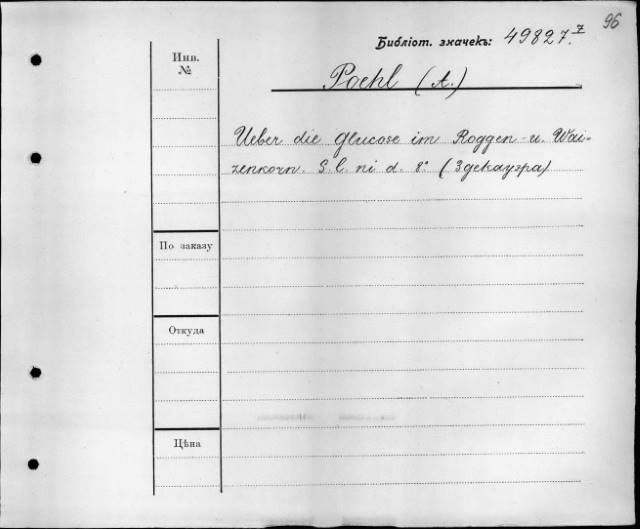 96
Библіот. значекъ: 49827.z
Инв.
№
Poehl (A.)
Ueber die Glucose im Roggen- u. Wai-
zenkorn. S. l. ni d. 8° (3 декаэра)
По заказу
Откуда
Цѣна